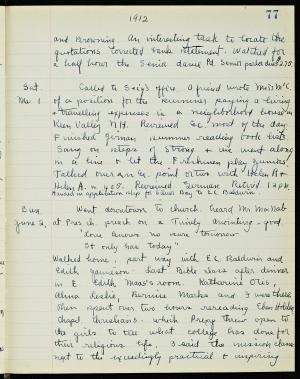 1912
77
and Browning. An interesting task to locate the
quotations. Corrected bank statement. Waltzed for
a half hour the Senior dance. Pd. Senior parlor dues 2.75.
Sat.
Called to Sec'y's office. A friend wrote Miss McC.
of a position for the summer paying a living
& travelling expenses in a neighborhood house in
Valley, N.H. Reviewed Ec. most of the day.
Finished German summer reading book lists.
Sang on steps of Strong & we went along
in a line & let the Freshmen play
Talked over an Ec. point or two with Helen B &
Helen A. in 405. Reviewed German. Retired 12 P.M.
Handed in application slip for C. Baldwin.
Sun.
June 2,
Went downtown to church. Heard Mr. MacNab
at Pres. ch. preach on a Trinity Anointing - good
"Love knows no tomorrow
It only has today"
Walked home part way with E.C. Baldwin and
Edith Jamison. Last Bible class after dinner
in E. Edith Mass's room. Katharine Otis,
Alma Leslie, Bernice Marks and I were there.
Then spent over two hours rereading Eben Holden
Chapel theses - which Prexy threw open to
the girls to tell what college has done for
their religious life. I said the mission classes
next to the exceedingly practical & inspiring